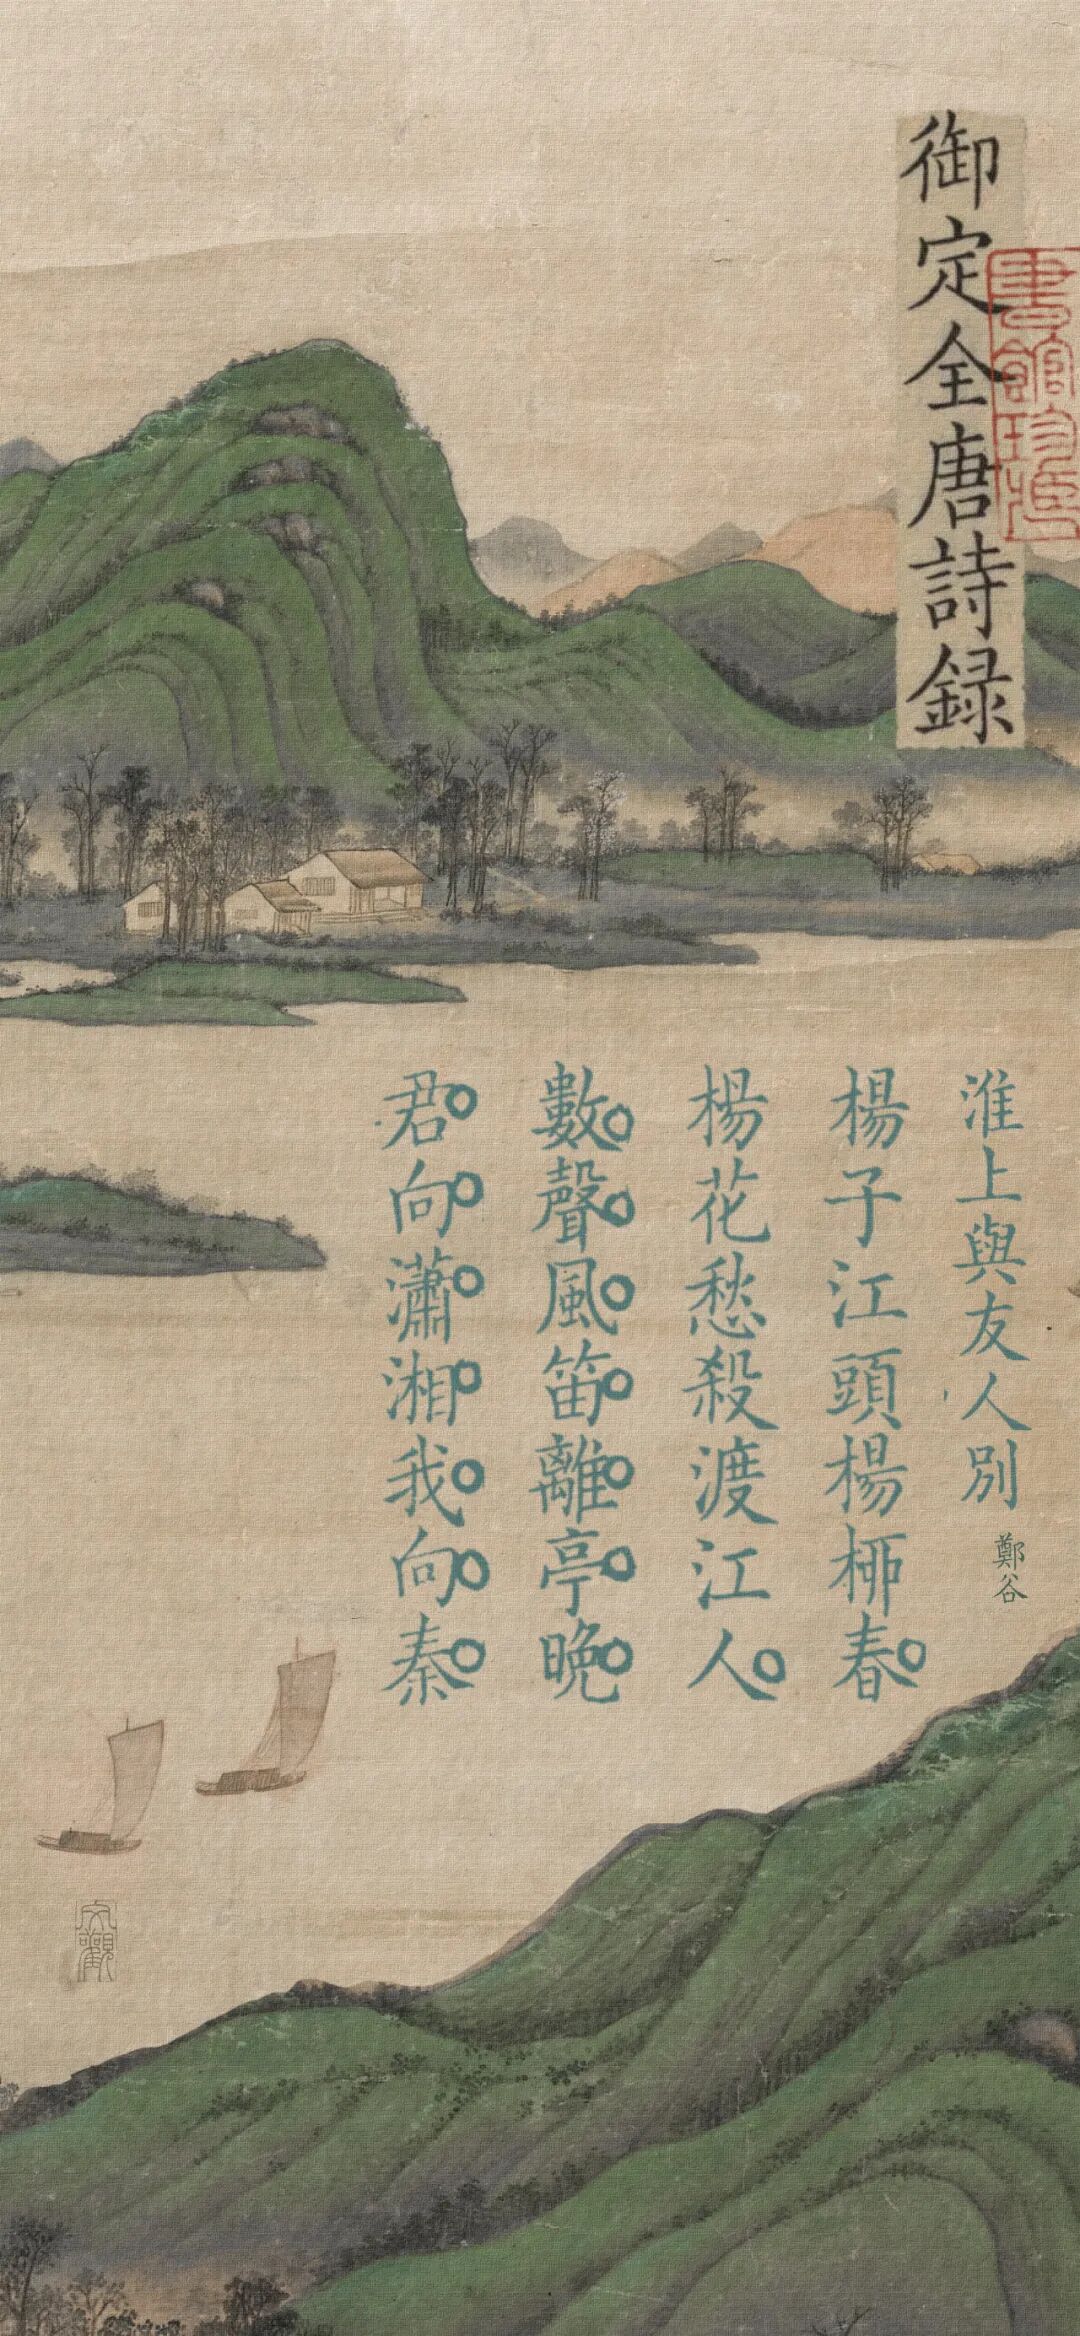 御定全唐詩録
書館珍藏
淮上與友人別
鄭谷
楊子江頭楊栁春。
楊花愁殺渡江人。
數。聲。風。笛。離。亭。晩。
君。向。瀟。湘。我。向。秦。
文觀